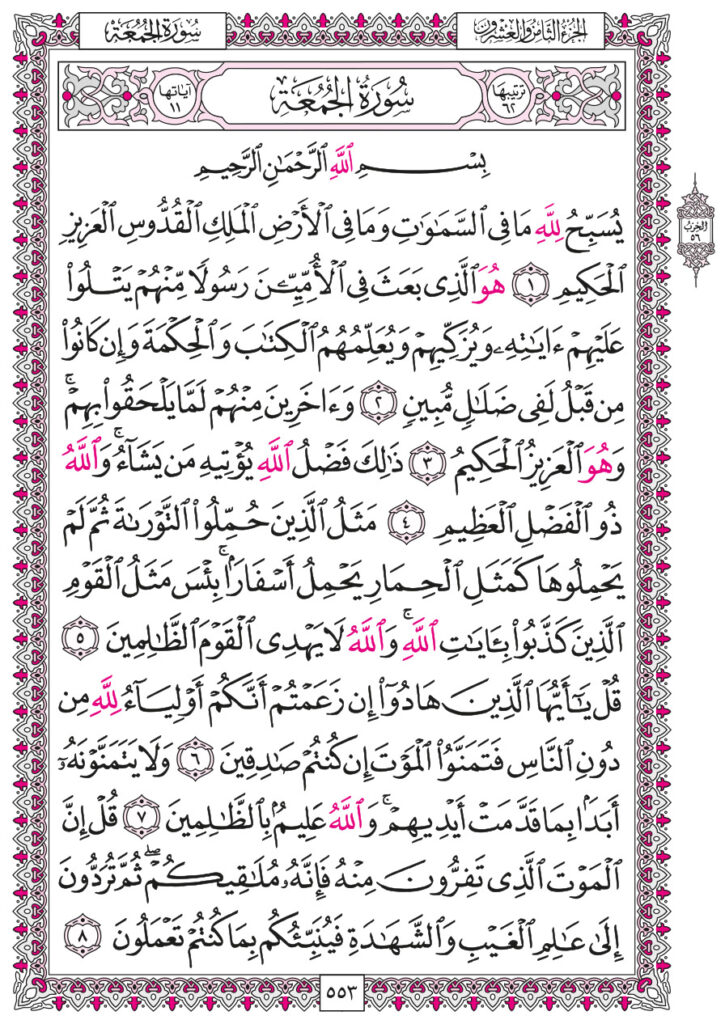 الجزء الثامن والعشرون
سورة الجمعة
ترتيبها ٦٢
سُورَةُ الجُمُعَةِ
آياتها ١١
بِسْمِ اللَّهِ الرَّحْمَٰنِ الرَّحِيمِ
يُسَبِّحُ لِلَّهِ مَا فِي السَّمَٰوَٰتِ وَمَا فِي الْأَرْضِ الْمَلِكِ الْقُدُّوسِ الْعَزِيزِ
الْحَكِيمِ ١ هُوَ الَّذِي بَعَثَ فِي الْأُمِّيِّـۧنَ رَسُولًا مِّنْهُمْ يَتْلُوا۟
عَلَيْهِمْ ءَايَٰتِهِۦ وَيُزَكِّيهِمْ وَيُعَلِّمُهُمُ الْكِتَٰبَ وَالْحِكْمَةَ وَإِن كَانُوا۟
مِن قَبْلُ لَفِي ضَلَٰلٍ مُّبِينٍ ٢ وَءَاخَرِينَ مِنْهُمْ لَمَّا يَلْحَقُوا۟ بِهِمْ ۚ
وَهُوَ الْعَزِيزُ الْحَكِيمُ ٣ ذَٰلِكَ فَضْلُ اللَّهِ يُؤْتِيهِ مَن يَشَآءُ ۚ وَاللَّهُ
ذُو الْفَضْلِ الْعَظِيمِ ٤ مَثَلُ الَّذِينَ حُمِّلُوا۟ التَّوْرَىٰةَ ثُمَّ لَمْ
يَحْمِلُوهَا كَمَثَلِ الْحِمَارِ يَحْمِلُ أَسْفَارًۢا ۚ بِئْسَ مَثَلُ الْقَوْمِ
الَّذِينَ كَذَّبُوا۟ بِـَٔايَٰتِ اللَّهِ ۚ وَاللَّهُ لَا يَهْدِي الْقَوْمَ الظَّٰلِمِينَ ٥
قُلْ يَٰٓأَيُّهَا الَّذِينَ هَادُوٓا۟ إِن زَعَمْتُمْ أَنَّكُمْ أَوْلِيَآءُ لِلَّهِ مِن
دُونِ النَّاسِ فَتَمَنَّوُا۟ الْمَوْتَ إِن كُنتُمْ صَٰدِقِينَ ٦ وَلَا يَتَمَنَّوْنَهُۥٓ
أَبَدًۢا بِمَا قَدَّمَتْ أَيْدِيهِمْ ۚ وَاللَّهُ عَلِيمٌۢ بِالظَّٰلِمِينَ ٧ قُلْ إِنَّ
الْمَوْتَ الَّذِي تَفِرُّونَ مِنْهُ فَإِنَّهُۥ مُلَٰقِيكُمْ ۖ ثُمَّ تُرَدُّونَ
إِلَىٰ عَٰلِمِ الْغَيْبِ وَالشَّهَٰدَةِ فَيُنَبِّئُكُم بِمَا كُنتُمْ تَعْمَلُونَ ٨
الحزب
٥٦
٥٥٣